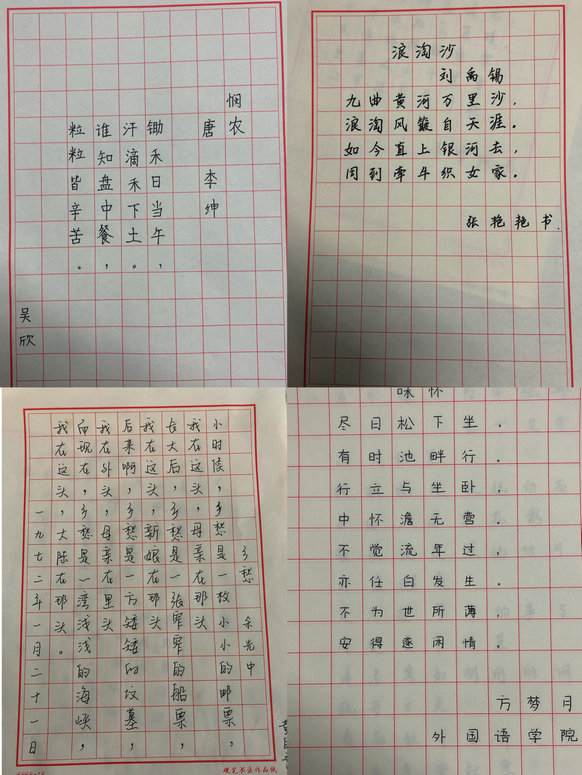 悯农
唐 李绅
锄禾日当午，
汗滴禾下土。
谁知盘中餐，
粒粒皆辛苦。
吴欣
浪淘沙
刘禹锡
九曲黄河万里沙，
浪淘风簸自天涯。
如今直上银河去，
同到牵牛织女家。
张艳艳书
乡愁 余光中
小时候，乡愁是一枚小小的邮票，
我在这头，母亲在那头
长大后，乡愁是一张窄窄的船票，
我在这头，新娘在那头
后来啊，乡愁是一方矮矮的坟墓，
我在外头，母亲在里头
而现在，乡愁是一湾浅浅的海峡，
我在这头，大陆在那头。
一九七二年一月二十一日
硬笔书法作品纸
咏怀
尽日松下坐，
有时池畔行。
行立与坐卧，
中怀澹无营。
不觉流年过，
亦任白发生。
不为世所薄，
安得遂闲情。
方梦月
外国语学院